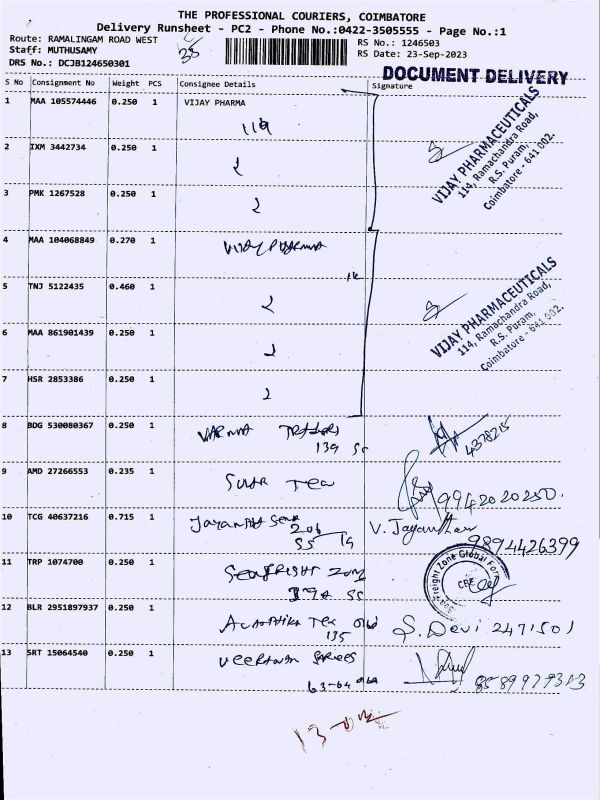 THE PROFESSIONAL COURIERS, COIMBATORE
Delivery Runsheet - PC2 - Phone No.:0422-3505555 - Page No.:1
Route: RAMALINGAM ROAD WEST
RS No.: 1246503
Staff: MUTHUSAMY
RS Date: 23-Sep-2023
DRS No.: DCJB124650301
DOCUMENT DELIVERY
S No Consignment No Weight PCS Consignee Details Signature
1 MAA 105574446 0.250 1 VIJAY PHARMA
114
VIJAY PHARMACEUTICALS
114, Ramachandra Road,
R.S. Puram,
Coimbatore - 641 002.
2 IXM 3442734 0.250 1
3 PMK 1267528 0.250 1
4 MAA 104068849 0.270 1 VIJAY PHARMA
5 TNJ 5122435 0.460 1
VIJAY PHARMACEUTICALS
114, Ramachandra Road,
R.S. Puram,
Coimbatore - 641 002.
6 MAA 861901439 0.250 1
7 HSR 2853386 0.250 1
8 BDG 530080367 0.250 1 VARMA TRADERS
139 SS
4378215
9 AMD 27266553 0.235 1
9942020250.
10 TCG 40637216 0.715 1
206
V. Jayanthan
9894426399
11 TRP 1074700 0.250 1
390 SS
Sea Freight Zone Global Forw
CBE
12 BLR 2951897937 0.250 1
135
S. Devi 2471501
13 SRT 15064540 0.250 1
63-64